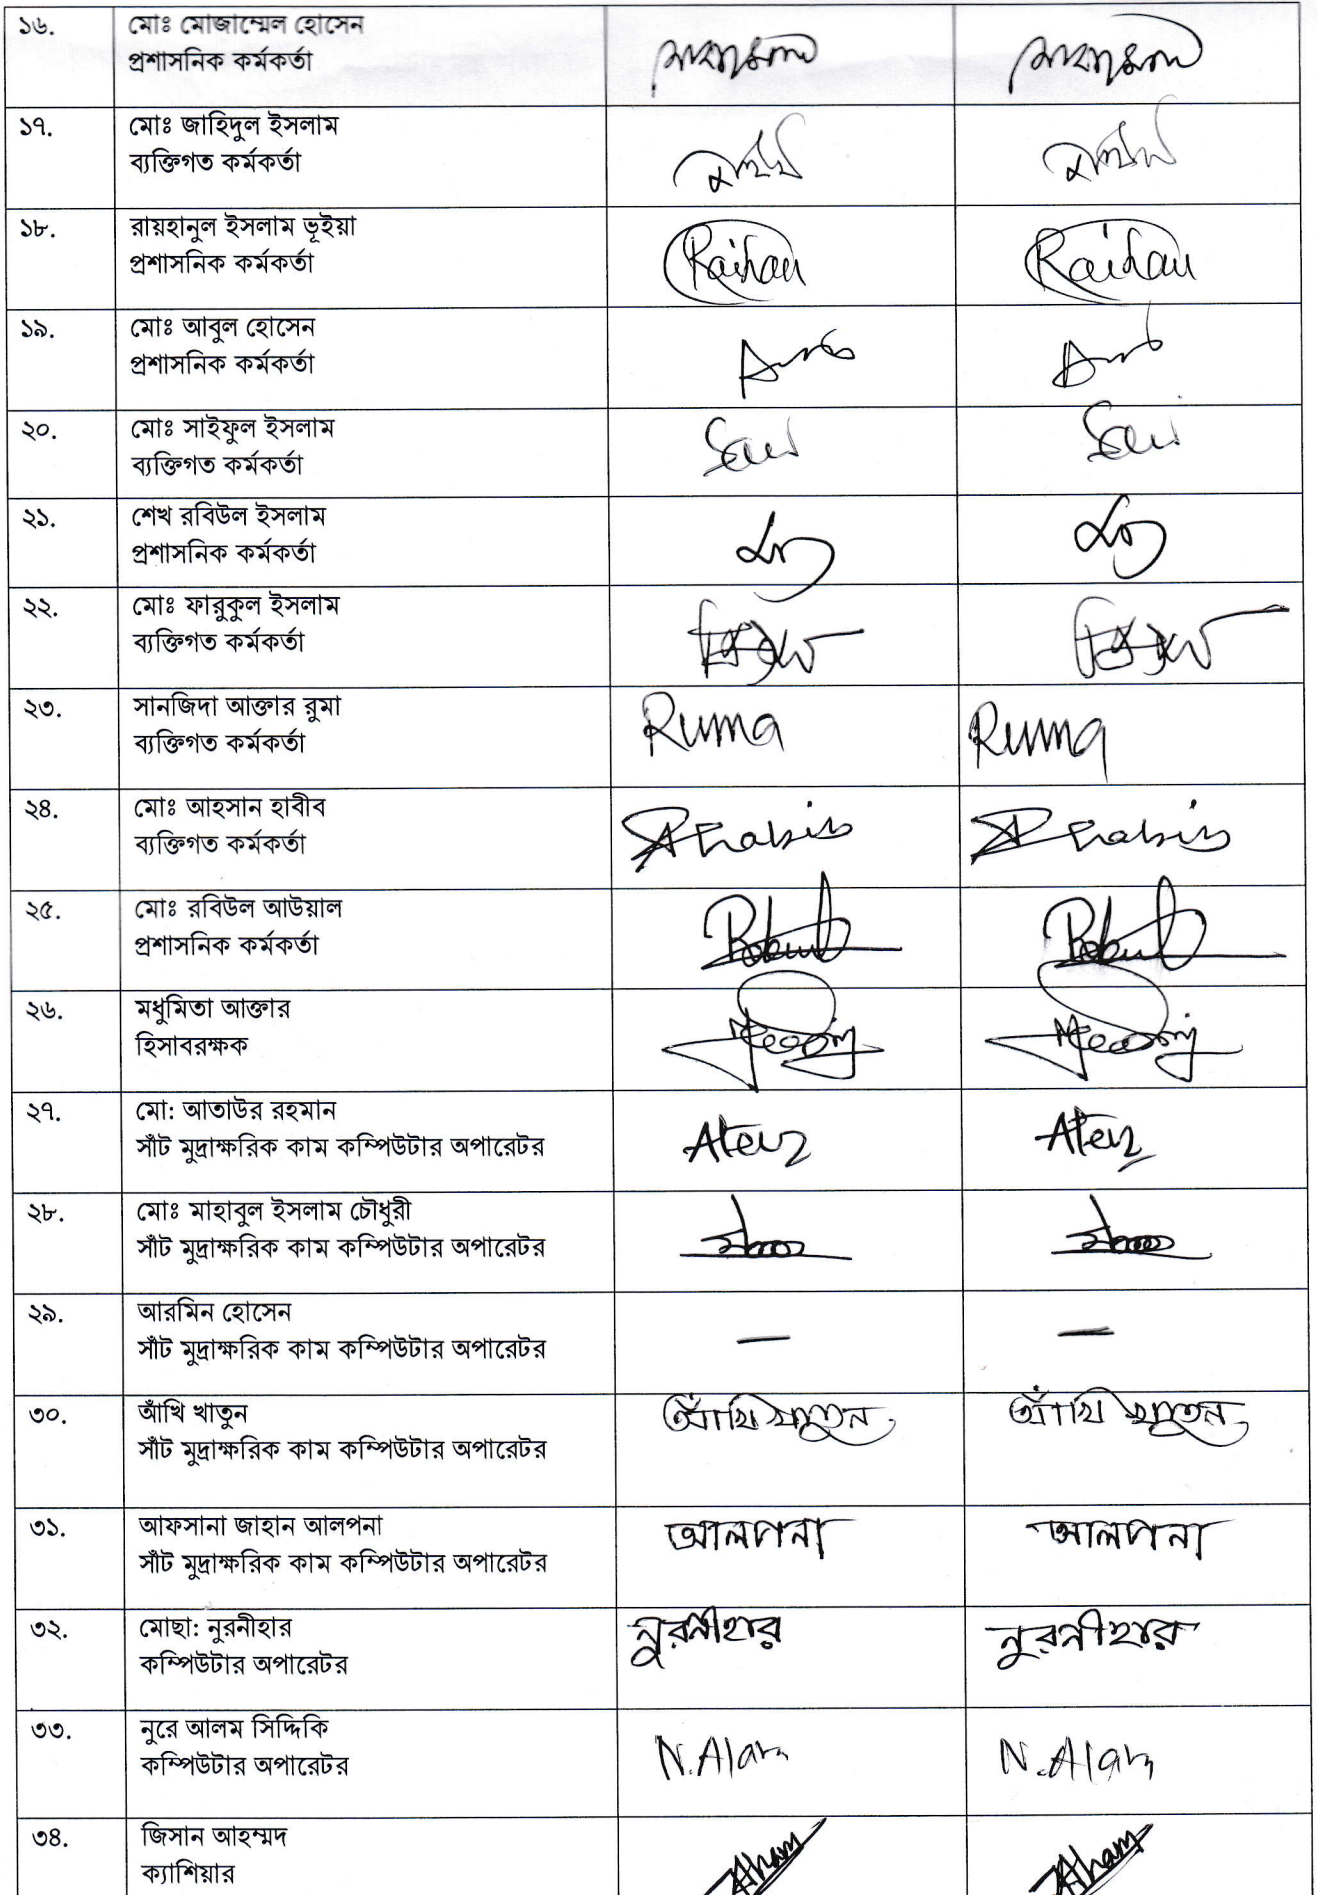 ১৬.
মোঃ মোজাম্মেল হোসেন
প্রশাসনিক কর্মকর্তা
১৭.
মোঃ জাহিদুল ইসলাম
ব্যক্তিগত কর্মকর্তা
১৮.
রায়হানুল ইসলাম ভূইয়া
প্রশাসনিক কর্মকর্তা
Raihan Raihan
১৯.
মোঃ আবুল হোসেন
প্রশাসনিক কর্মকর্তা
২০.
মোঃ সাইফুল ইসলাম
ব্যক্তিগত কর্মকর্তা
২১.
শেখ রবিউল ইসলাম
প্রশাসনিক কর্মকর্তা
২২.
মোঃ ফারুকুল ইসলাম
ব্যক্তিগত কর্মকর্তা
২৩.
সানজিদা আক্তার রুমা
ব্যক্তিগত কর্মকর্তা
Ruma Ruma
২৪.
মোঃ আহসান হাবীব
ব্যক্তিগত কর্মকর্তা
২৫.
মোঃ রবিউল আউয়াল
প্রশাসনিক কর্মকর্তা
২৬.
মধুমিতা আক্তার
হিসাবরক্ষক
২৭.
মো: আতাউর রহমান
সাঁট মুদ্রাক্ষরিক কাম কম্পিউটার অপারেটর
২৮.
মোঃ মাহাবুল ইসলাম চৌধুরী
সাঁট মুদ্রাক্ষরিক কাম কম্পিউটার অপারেটর
২৯.
আরমিন হোসেন
সাঁট মুদ্রাক্ষরিক কাম কম্পিউটার অপারেটর
— —
৩০.
আঁখি খাতুন
সাঁট মুদ্রাক্ষরিক কাম কম্পিউটার অপারেটর
আঁখি খাতুন আঁখি খাতুন
৩১.
আফসানা জাহান আলপনা
সাঁট মুদ্রাক্ষরিক কাম কম্পিউটার অপারেটর
আলপনা আলপনা
৩২.
মোছা: নুরনীহার
কম্পিউটার অপারেটর
নুরনীহার নুরনীহার
৩৩.
নুরে আলম সিদ্দিকি
কম্পিউটার অপারেটর
N.Alam N.Alam
৩৪.
জিসান আহম্মদ
ক্যাশিয়ার